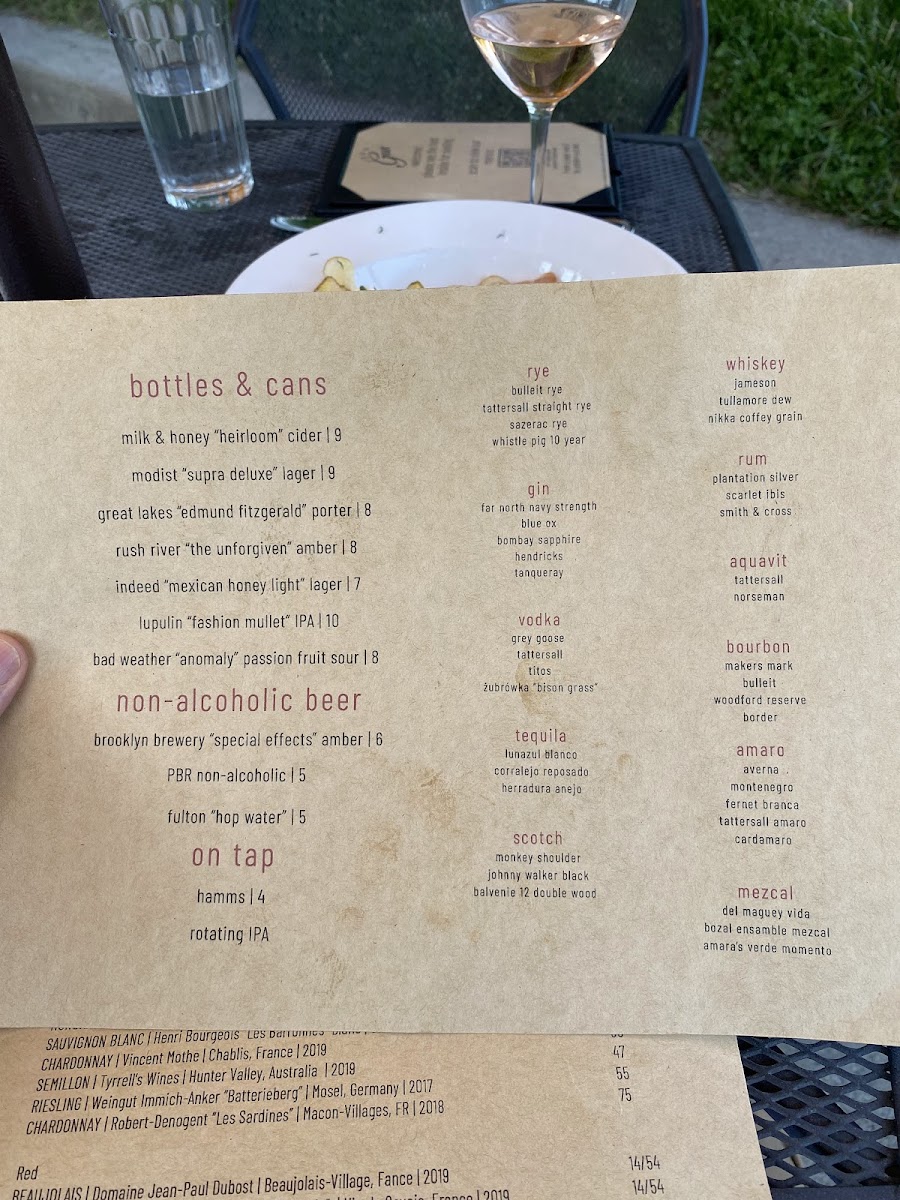 bottles & cans
milk & honey "heirloom" cider | 9
modist "supra deluxe" lager | 9
great lakes "edmund fitzgerald" porter | 8
rush river "the unforgiven" amber | 8
indeed "mexican honey light" lager | 7
lupulin "fashion mullet" IPA | 10
bad weather "anomaly" passion fruit sour | 8
non-alcoholic beer
brooklyn brewery "special effects" amber | 6
PBR non-alcoholic | 5
fulton "hop water" | 5
on tap
hamms | 4
rotating IPA
rye
bulleit rye
tattersall straight rye
sazerac rye
whistle pig 10 year
gin
far north navy strength
blue ox
bombay sapphire
hendricks
tanqueray
vodka
grey goose
tattersall
titos
żubrówka "bison grass"
tequila
lunazul blanco
corralejo reposado
herradura anejo
scotch
monkey shoulder
johnny walker black
balvenie 12 double wood
whiskey
jameson
tullamore dew
nikka coffey grain
rum
plantation silver
scarlet ibis
smith & cross
aquavit
tattersall
norseman
bourbon
makers mark
bulleit
woodford reserve
border
amaro
averna
montenegro
fernet branca
tattersall amaro
cardamaro
mezcal
del maguey vida
bozal ensamble mezcal
amara's verde momento
SAUVIGNON BLANC | Henri Bourgeois "Les
CHARDONNAY | Vincent Mothe | Chablis, France | 2019 47
SEMILLON | Tyrrell's Wines | Hunter Valley, Australia | 2019 55
RIESLING | Weingut Immich-Anker "Batterieberg" | Mosel, Germany | 2017 75
CHARDONNAY | Robert-Denogent "Les Sardines" | Macon-Villages, FR | 2018
Red
BEAUJOLAIS | Domaine Jean-Paul Dubost | Beaujolais-Village, Fance | 2019 14/54
France | 2019 14/54